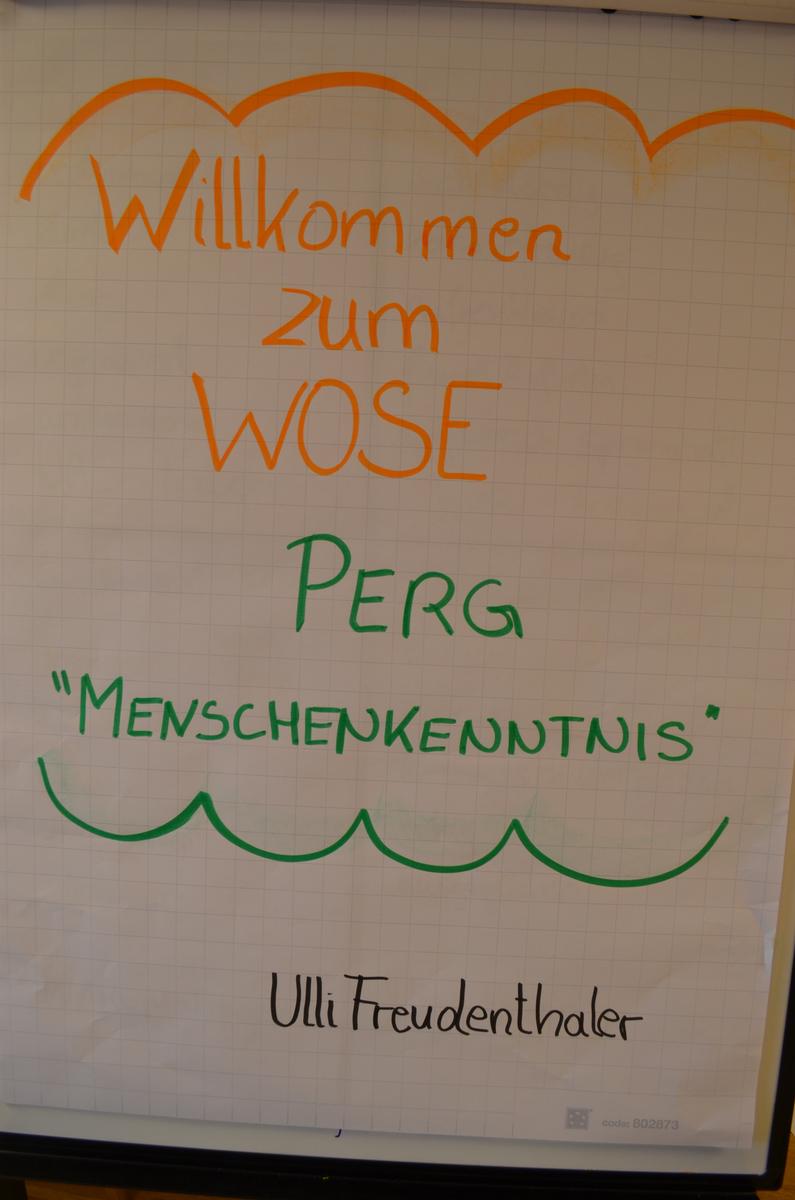 Willkommen
zum
WOSE
PERG
"MENSCHENKENNTNIS"
Ulli Freudenthaler
code: 802873